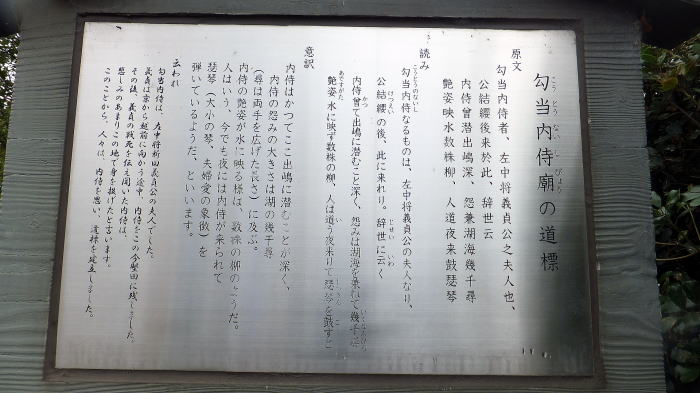 勾当内侍廟の道標
こうとうないしびょう
原文
勾当内侍者、左中将義貞公之夫人也、
公結纓後来於此、辞世云
内侍曾潜出嶋深、怨兼湖海幾千尋
艶姿映水数株柳、人道夜来鼓瑟琴
読み
勾当内侍なるものは、左中将義貞公の夫人なり、
こうとうのないし
公結纓の後、此に来れり。辞世に云く
けつえい じせい いわ
内侍曾て出嶋に潜むこと深く、怨みは湖海を兼ねて幾千尋
かつ
艶姿 水に映ず数株の柳、人は道う夜来りて瑟琴を鼓すと
あですがた い しつきん こ
意訳
内侍はかつてここ出嶋に潜むことが深く、
内侍の怨みの大きさは湖の幾千尋
(尋は両手を広げた長さ)に及ぶ。
内侍の艶姿が水に映る様は、数株の柳のようだ。
人はいう、今でも夜には内侍が来られて
瑟琴(大小の琴、夫婦愛の象徴)を
弾いているようだ、といいます。
云われ
勾当内侍は、左中将新田義貞公の夫人でした。
義貞は京から越前に向かう途中、内侍をこの今堅田に残しました。
その後、義貞の戦死を伝え聞いた内侍は、
悲しみのあまりこの地で身を投げたと言います。
このことから、人々は、内侍を思い、道標を建立しました。